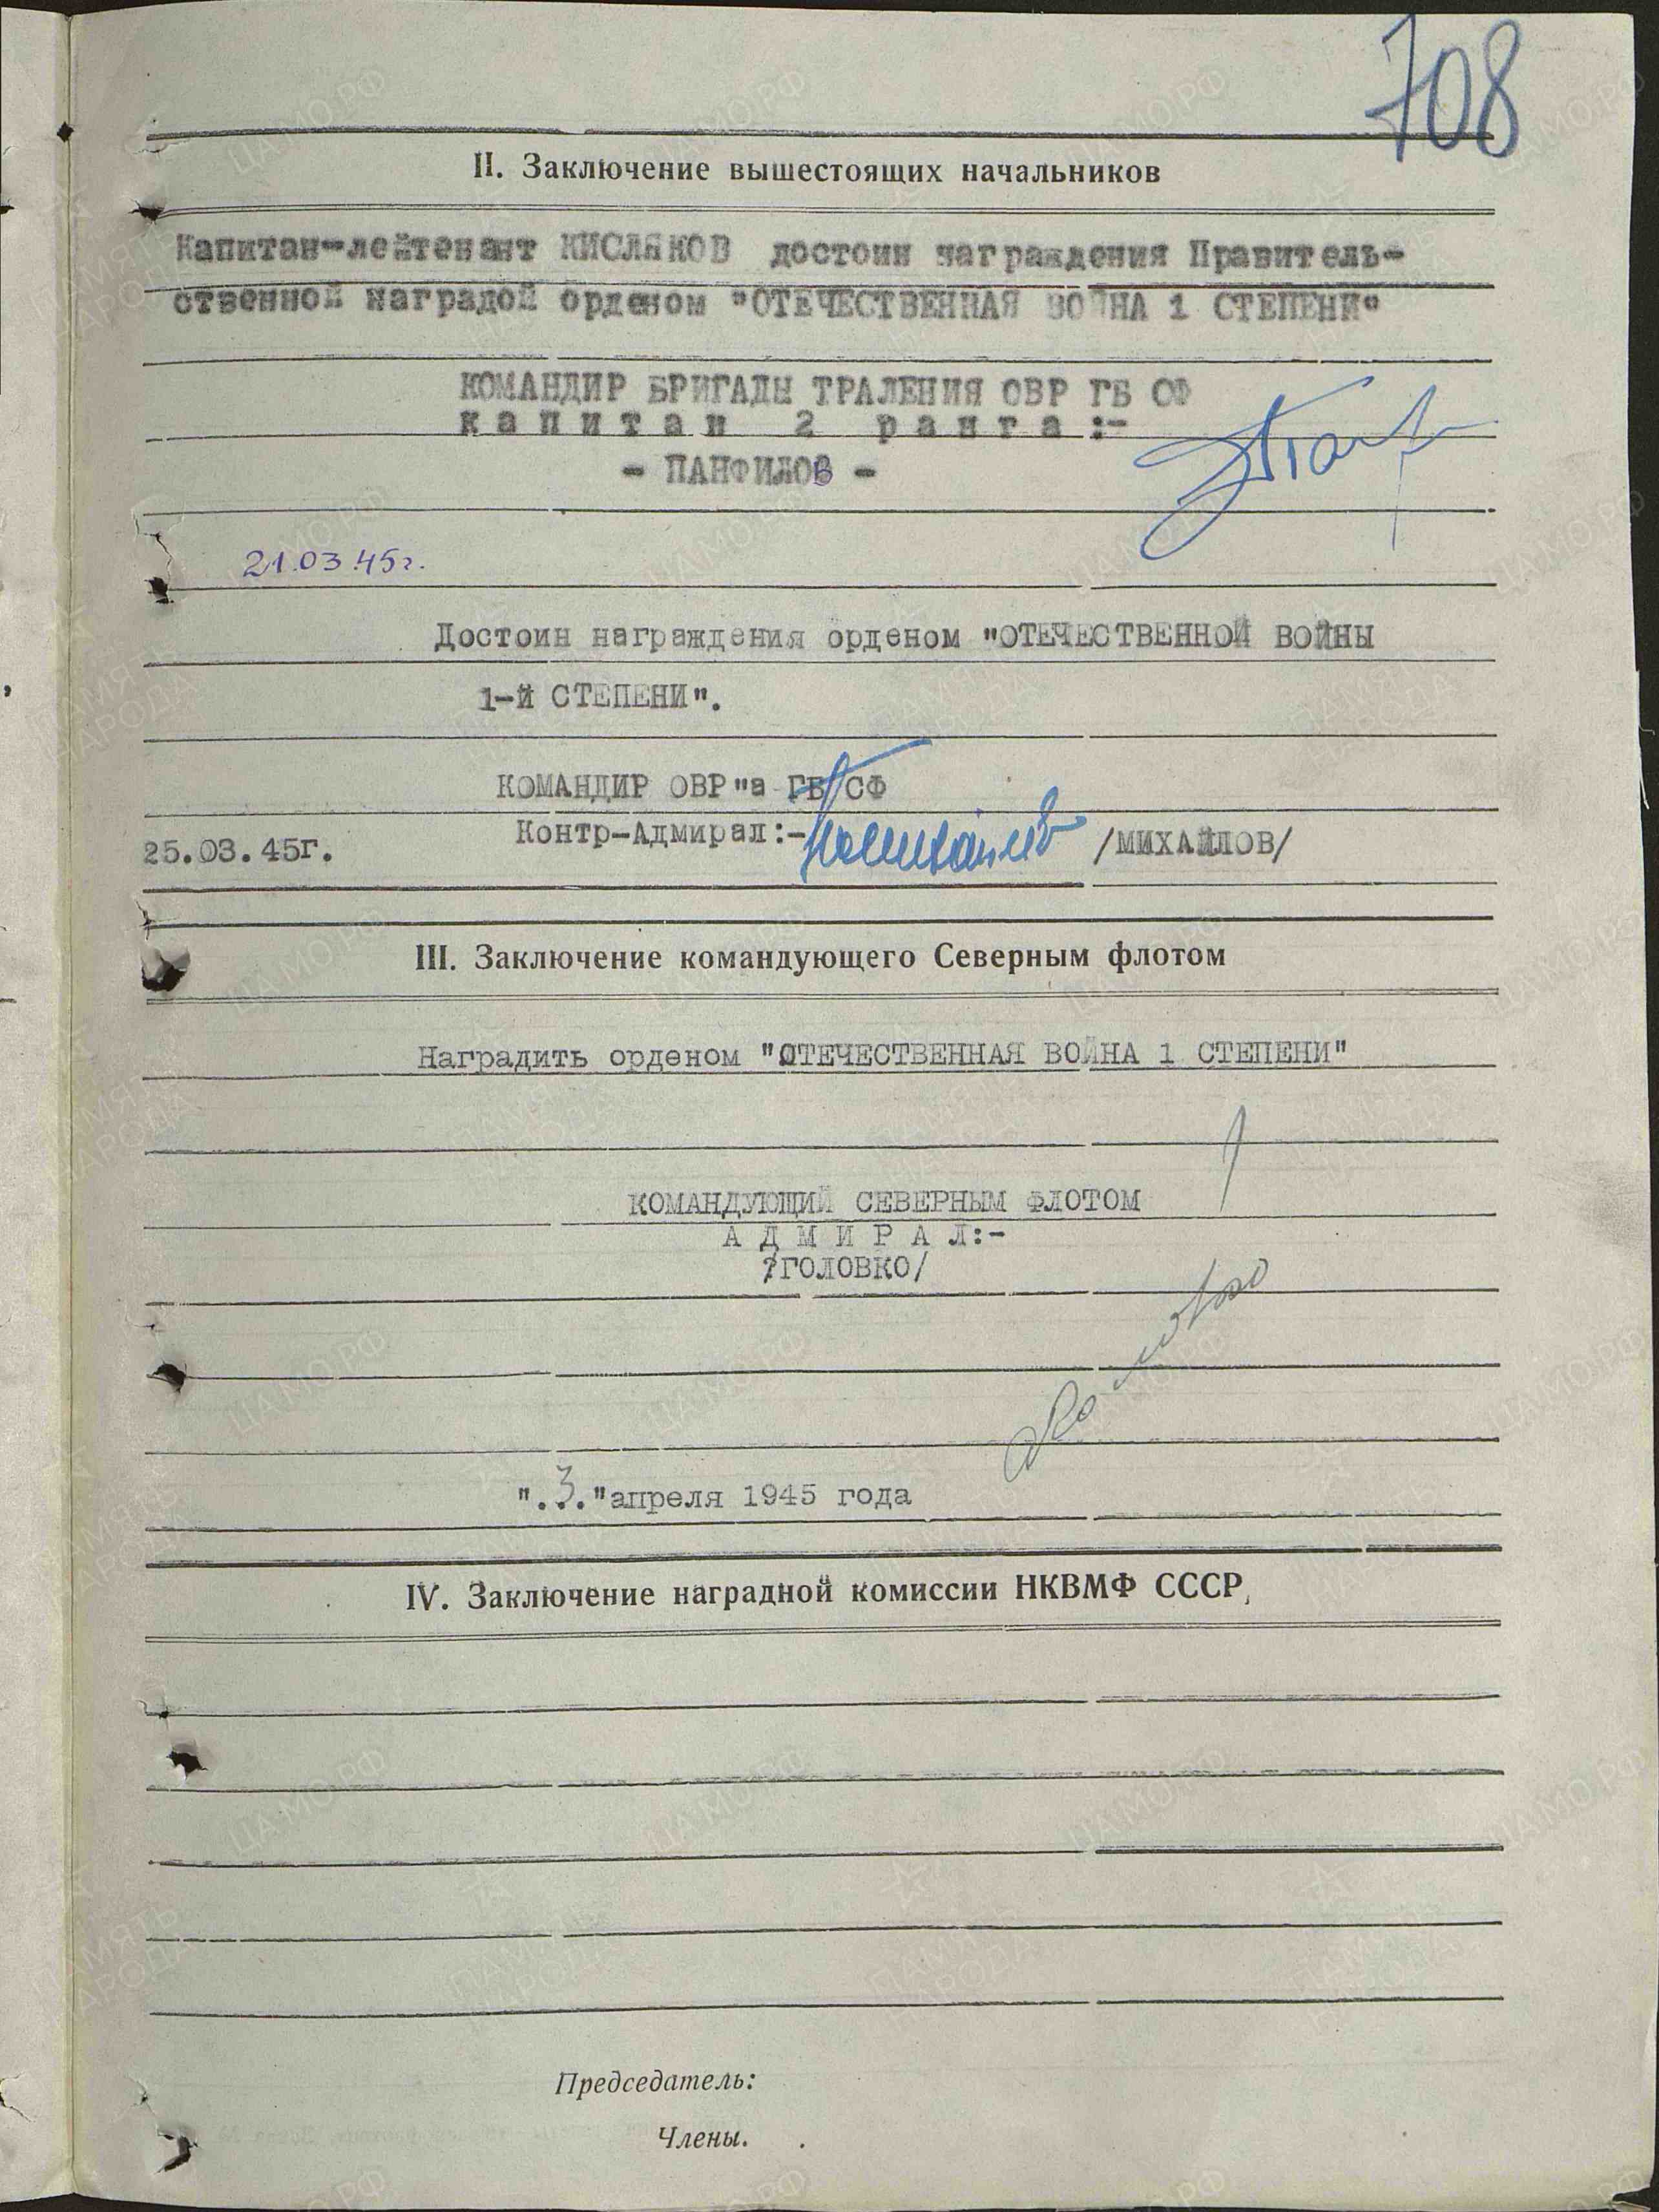 708
II. Заключение вышестоящих начальников
Капитан-лейтенант КИСЛЯКОВ достоин награждения Правитель-
ственной наградой орденом "ОТЕЧЕСТВЕННАЯ ВОЙНА 1 СТЕПЕНИ"
КОМАНДИР БРИГАДЫ ТРАЛЕНИЯ ОВР ГБ СФ
капитан 2 ранга:-
- ПАНФИЛОВ -
21.03.45г.
Достоин награждения орденом "ОТЕЧЕСТВЕННОЙ ВОЙНЫ
1-й СТЕПЕНИ".
КОМАНДИР ОВР"а ГБ СФ
Контр-Адмирал:- /МИХАЙЛОВ/
25.03.45г.
III. Заключение командующего Северным флотом
Наградить орденом "ОТЕЧЕСТВЕННАЯ ВОЙНА 1 СТЕПЕНИ"
КОМАНДУЮЩИЙ СЕВЕРНЫМ ФЛОТОМ
АДМИРАЛ:-
/ГОЛОВКО/
".3."апреля 1945 года
IV. Заключение наградной комиссии НКВМФ СССР
Председатель:
Члены.